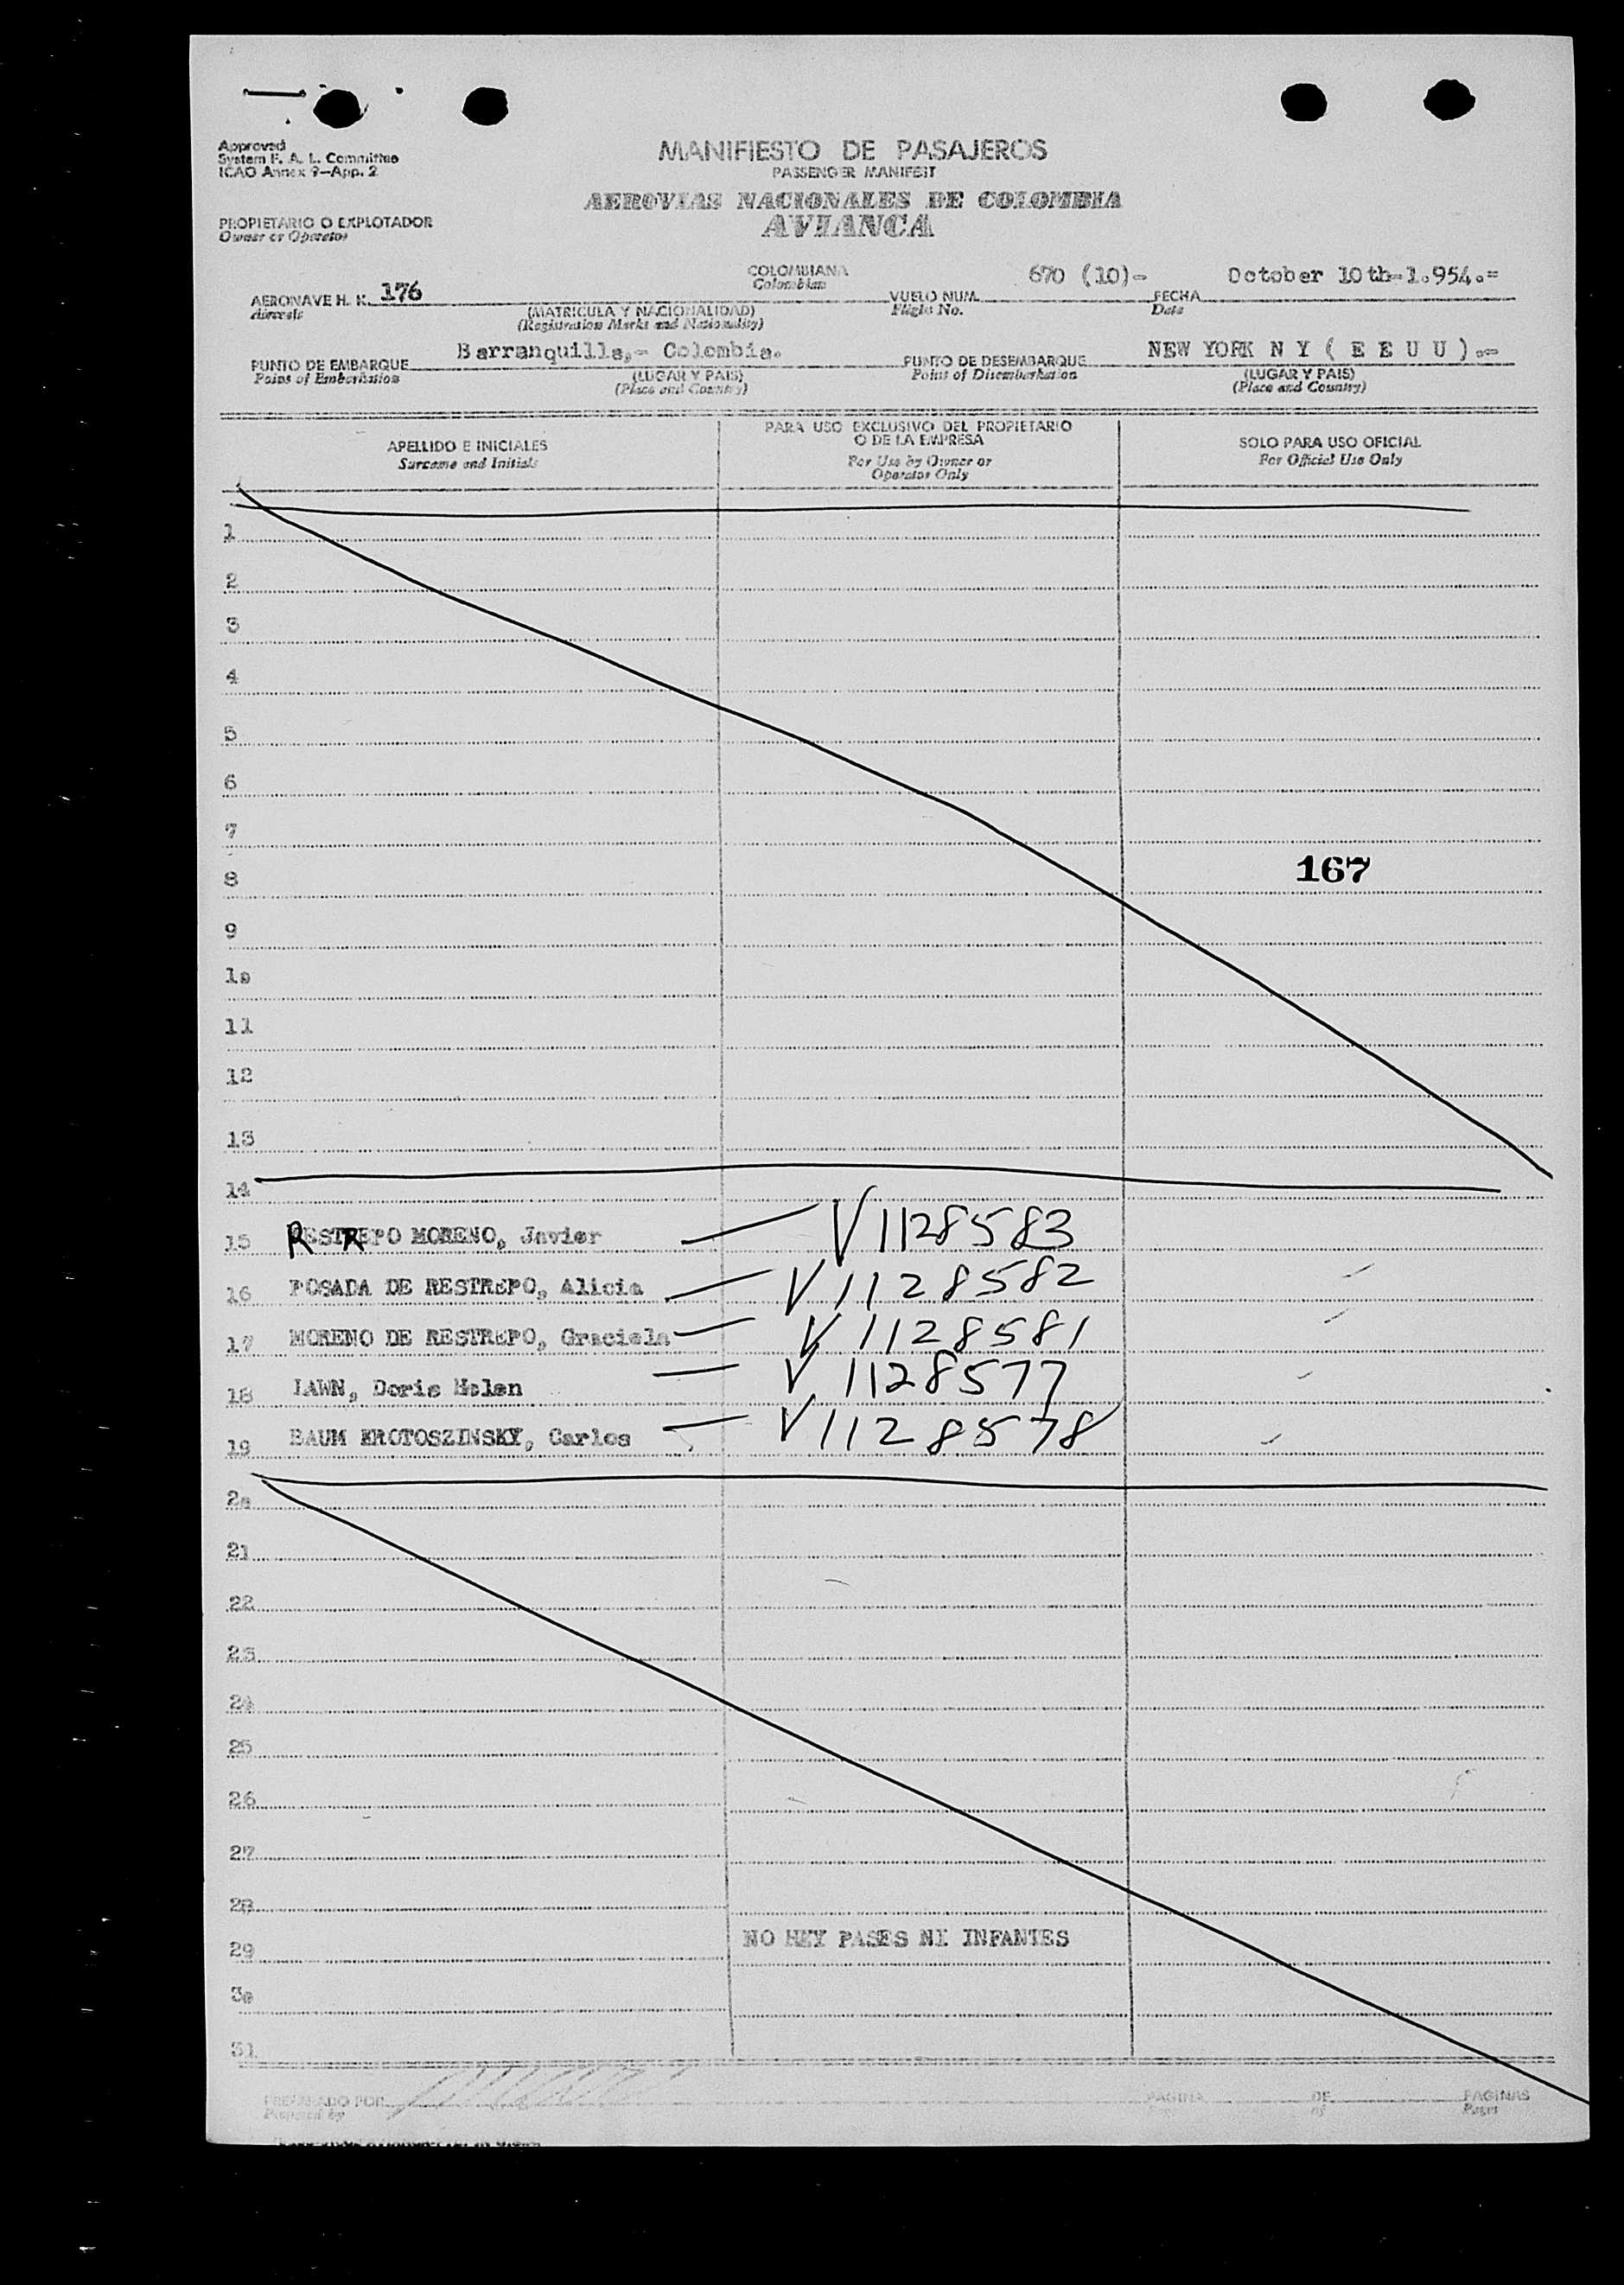 Approved
System F. A. L. Committee
ICAO Annex 9—App. 2
MANIFIESTO DE PASAJEROS
PASSENGER MANIFEST
AEROVIAS NACIONALES DE COLOMBIA
AVIANCA
PROPIETARIO O EXPLOTADOR
Owner or Operator
COLOMBIANA
Colombian
670 (10)-
October 10th-1.954.=
AERONAVE H. K. 176
Aircraft
(MATRICULA Y NACIONALIDAD)
(Registration Marks and Nationality)
VUELO NUM.
Flight No.
FECHA
Date
Barranquilla,- Colombia.
NEW YORK N Y ( E E U U ).-
PUNTO DE EMBARQUE
Point of Embarkation
(LUGAR Y PAIS)
(Place and Country)
PUNTO DE DESEMBARQUE
Point of Disembarkation
(LUGAR Y PAIS)
(Place and Country)
APELLIDO E INICIALES
Surname and Initials
PARA USO EXCLUSIVO DEL PROPIETARIO
O DE LA EMPRESA
For Use by Owner or
Operator Only
SOLO PARA USO OFICIAL
For Official Use Only
1
2
3
4
5
6
7
167
8
9
1o
11
12
13
14
15 RESTREPO MORENO, Javier V 1128583
16 POSADA DE RESTREPO, Alicia V 1128582
17 MORENO DE RESTREPO, Graciela V 1128581
18 LAWN, Doris Helen V 1128577
19 BAUM KROTOSZINSKY, Carlos V 1128578
2o
21
22
23
24
25
26
27
28
NO HEY PASES NI INFANTES
29
3o
31
PREPARADO POR
Prepared by
PAGINA
DE
of
PAGINAS
Pages